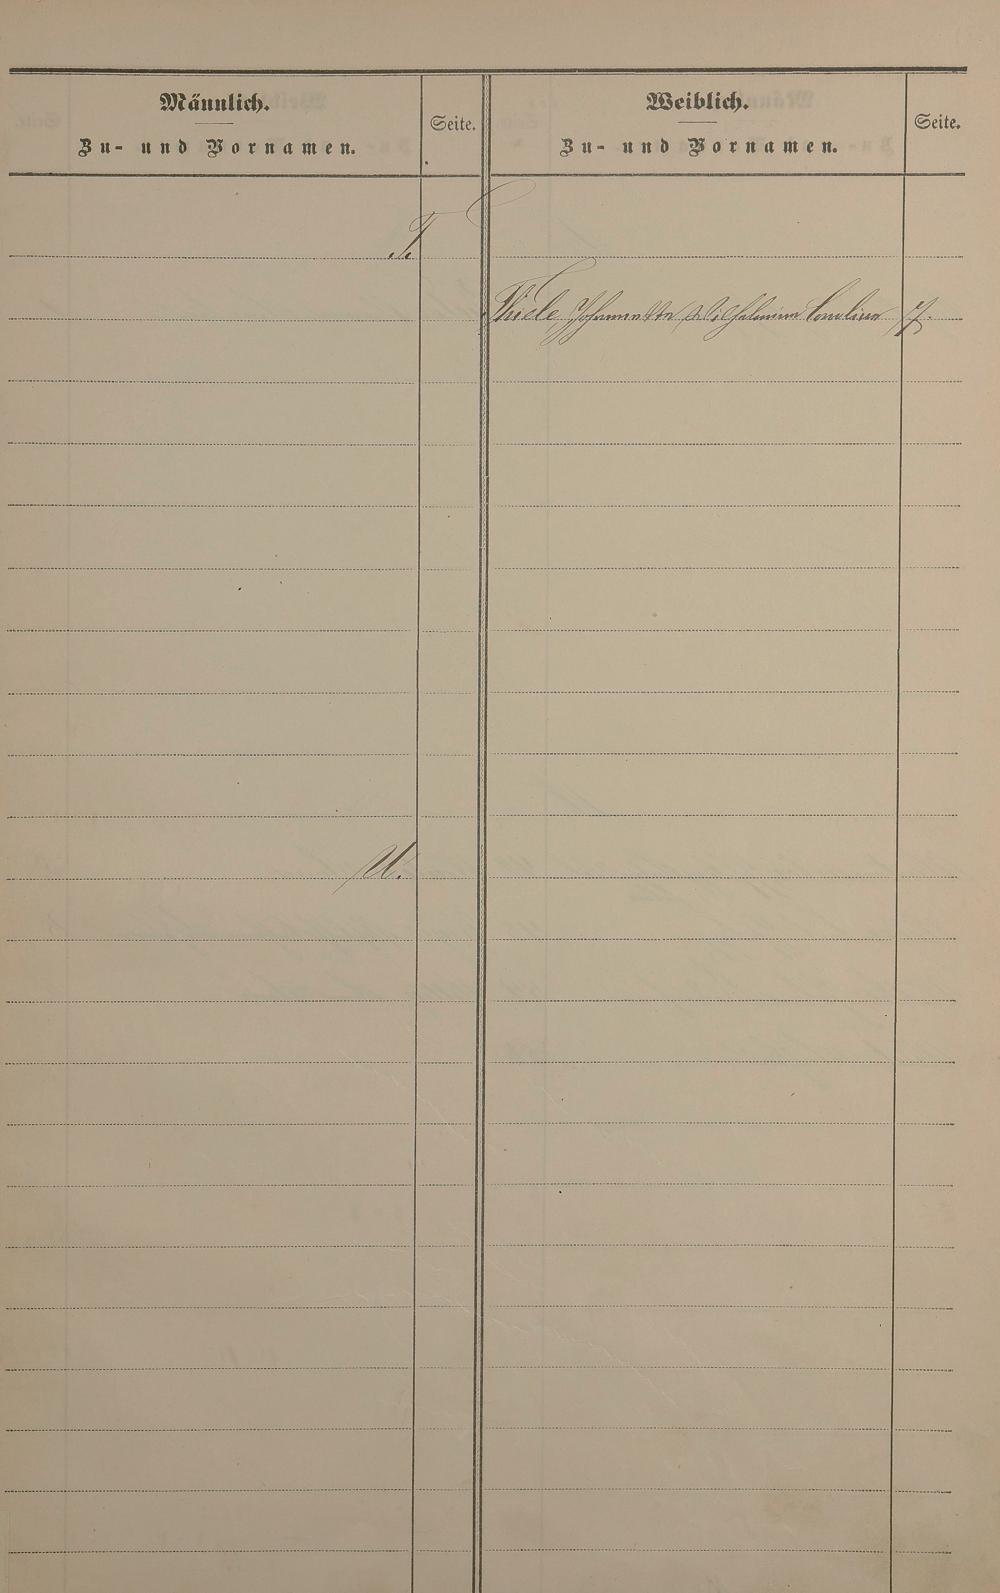 Männlich.
Zu- und Vornamen.
Seite.
Weiblich.
Zu- und Vornamen.
Seite.
T.
Thiele, Johannette Wilhelmine Caroline 7.
U.